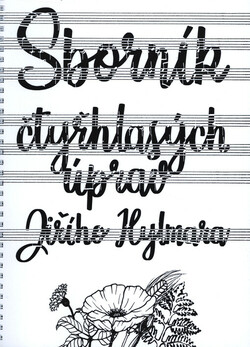 Sborník
čtyřhlasých
úprav
Jiřího Hylmara